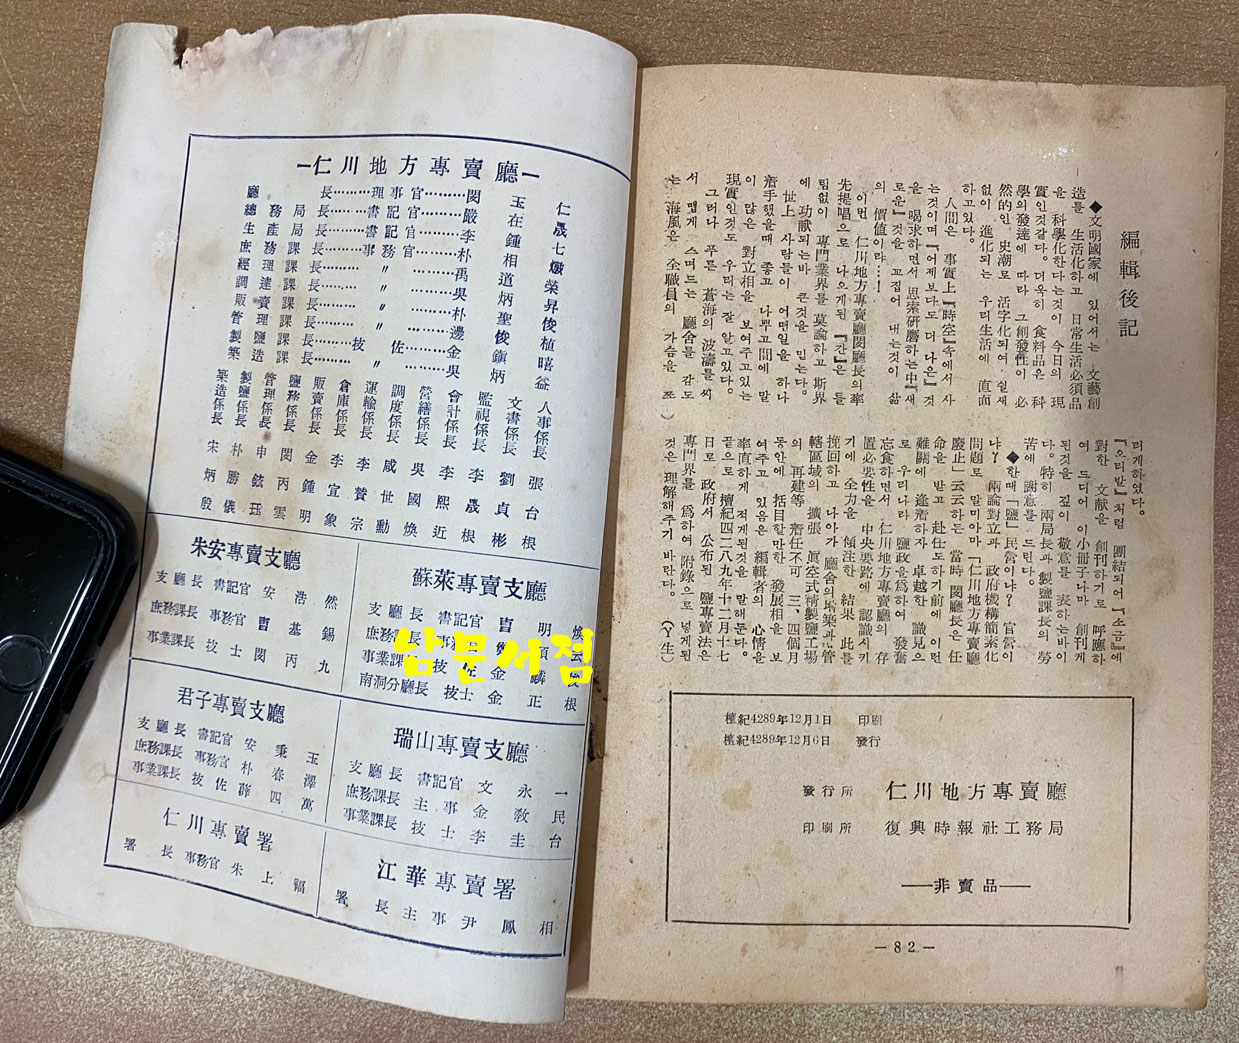 編輯後記
◆文明國家에 있어서는 文藝創
造를 生活化하고 日常生活必須品
을 科學化한다는것이 今日의 現
實인것같다. 더욱히 食料品은 科
學의 發達에 따라 그創發性이 必
然的인 史潮로 活字化되여 쉴새
없이 進化되는 우리生活에 直面
하고있다.
人間은 事實上『時空』속에서 사
는것이며『어제보다도 더 나은』것
을 渴求하면서 思索硏磨하는中『새
로운』것을 꼬집어 내는것이 삶
의 價値이라…!
이번 仁川地方專賣廳閔廳長의率
先提唱으로 나오게된『간』은를
림없이 專門業界를 莫論하고 斯界
에 功献되는바 큰것을 믿는다.
世上 사람들이 어떤일을 하나
着手했을때 좋고 나쁘고間에 말
이 많은 對立相을 보여주고있는
現實인것도 우리는 잘알고있다.
그러나 푸른 蒼海의 波濤를 씨
서 맵게 스며드는 廳舍를 감도
는 海風은 全職員의 가슴을 쪼
리게하였다.
『으리발』처럼 團結되어『소금』에
對한 文献을 創刊하기로 呼應하
여 드디어 이小冊子나마 創刊케
된것을 깊이 敬意를 表하는바이
다. 特히 兩局長과 製鹽課長의 勞
苦에 謝意를 드린다.
◆한때「鹽」民營이냐? 官營이
냐? 兩論對立과 政府機構簡素化
問題로 말미아마「仁川地方專賣廳
廢止」云云하든 當時 閔廳長은 任
命을 받고 赴任도하기前에 이런
難關에 逢着하자 卓越한 識見으
로 우리나라 鹽政을爲하여 發奮
忘食하면서 仁川地方專賣廳의 存
置必要性을 中央要路에 認識시키
기에 全力을 傾注한 結果 此를
挽回하고 나아가 廳舍의增築과管
轄區域의 擴張 眞空式精製鹽工場
의 再建等 着任不可 三、四個月
동안에 括目할만한 發展相을 보
여주고 있음은 編輯者의 心情을
率直하게 적게된것을 말해둔다.
끝으로 檀紀四二八九年十二月十七
日로 政府서 公布된 鹽專賣法은
專門界를 爲하여 附錄으로 넣게된
것은 理解해주기 바란다. (Y生)
檀紀4289年12月1日 印刷
檀紀4289年12月6日 發行
發行所 仁川地方專賣廳
印刷所 復興時報社工務局
——非賣品——
—82—
—仁川地方專賣廳—
廳長………理事官………閔玉仁
總務局長……書記官………嚴在晟
生產局長……書記官………李鍾七
庶務課長……事務官………朴相
經理課長………〃………禹道榮
調達課長………〃………吳炳昇
販賣課長………〃………朴聖俊
管理課長………〃………邊俊植
製鹽課長……技佐………金鎭
築造課長………〃………吳炳益
人事係長 張台根
文書係長 劉貞彬
監視係長 李晟根
會計係長 李熙近
營繕係長 吳國煥
調度係長 咸世勳
運輸係長 李贊宗
倉庫係長 李宣象
販賣係長 金鍾明
鹽務係長 閔丙雲
管理係長 申鉉玨
製鹽係長 朴勝儀
築造係長 宋炳殷
朱安專賣支廳
支廳長 書記官 安浩然
庶務課長 事務官 曺基錫
事業課長 技士 閔丙九
蘇萊專賣支廳
支廳長 書記官 曺明煥
庶務課長
事業課 技佐 金麟
南洞分廳長 技士 金正根
君子專賣支廳
支廳長 書記官 安秉玉
庶務課長 事務官 朴春澤
事業課長 技佐 薛四萬
瑞山專賣支廳
支廳長 書記官 文永一
庶務課長 主事 金敎民
事業課長 技士 李圭台
仁川專賣署
署長 事務官 朱上福
江華專賣署
署長 主事 尹鳳相
삼문서점